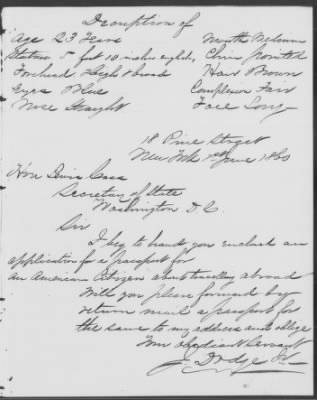 Description of
Age 23 Years Mouth Medium
Stature 5 feet 10 inches eighths Chin Pointed
Forehead High & broad Hair Brown
Eyes Blue Complexion Fair
Nose Straight Face Long
18 Pine Street
New York 1st June 1860
Hon Lewis Cass
Secretary of State
Washington D.C.
Sir
I beg to hand you enclosed an
application for a passport for
an American Citizen about traveling abroad
Will you please forward by
return mail a passport for
the same to my address and oblige
Your Obedient Servant
J. Dodge